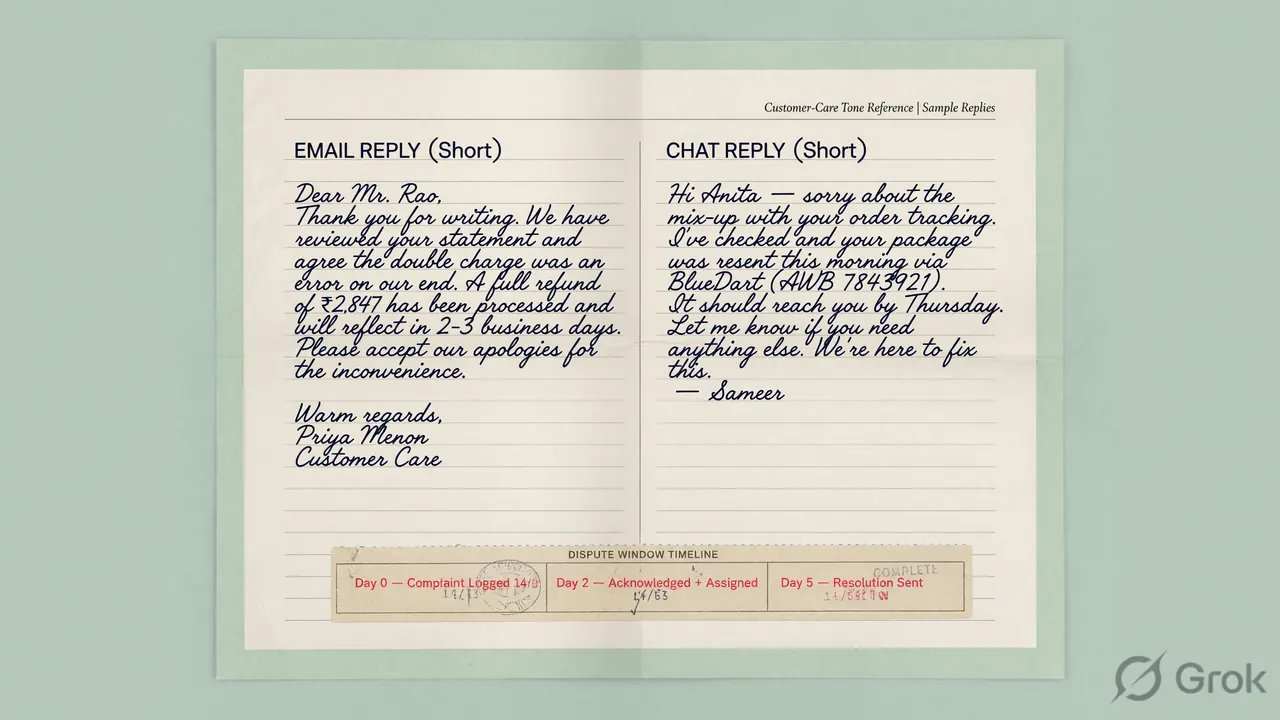 Customer-Care Tone Reference | Sample Replies
EMAIL REPLY (Short)
Dear Mr. Rao,
Thank you for writing. We have
reviewed your statement and
agree the double charge was an
error on our end. A full refund
of ₹2,847 has been processed and
will reflect in 2-3 business days.
Please accept our apologies for
the inconvenience.
Warm regards,
Priya Menon
Customer Care
CHAT REPLY (Short)
Hi Anita — sorry about the
mix-up with your order tracking.
I've checked and your package
was resent this morning via
BlueDart (AWB 7843921).
It should reach you by Thursday.
Let me know if you need
anything else. We're here to fix
this.
— Sameer
DISPUTE WINDOW TIMELINE
Day 0 — Complaint Logged
Day 2 — Acknowledged + Assigned
COMPLETE
Day 5 — Resolution Sent
Grok